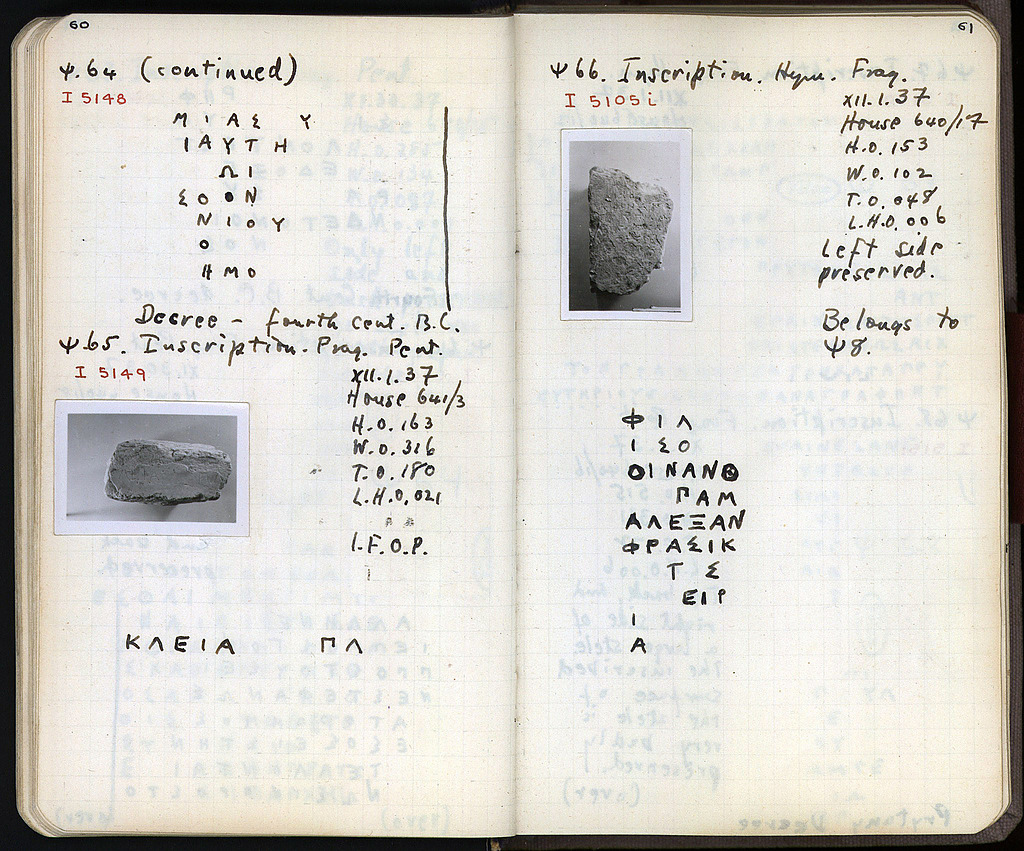 60
Ψ.64 (continued)
I 5148
Μ Ι Α Σ Υ
Ι Α Υ Τ Η
Ω Ι
Σ Ο Ο Ν
Ν Ι Ο Υ
Ο
Η Μ Ο
Decree - fourth cent. B.C.
Ψ.65. Inscription. Frag. Pent.
I 5149
XII.1.37
House 641/3
H.0.163
W.0.316
T.0.180
L.H.0.021
I.F.O.P.
Κ Λ Ε Ι Α Π Λ
61
Ψ 66. Inscription. Hym. Frag.
I 5105 i
XII.1.37
House 640/17
H.0.153
W.0.102
T.0.048
L.H.0.006
Left side
preserved.
Belongs to
Ψ8.
Φ Ι Λ
Ι Σ Ο
ΟΙΝΑΝΘ
ΠΑΜ
ΑΛΕΞΑΝ
ΦΡΑΣΙΚ
Τ Σ
ΕΙΡ
Ι
Α